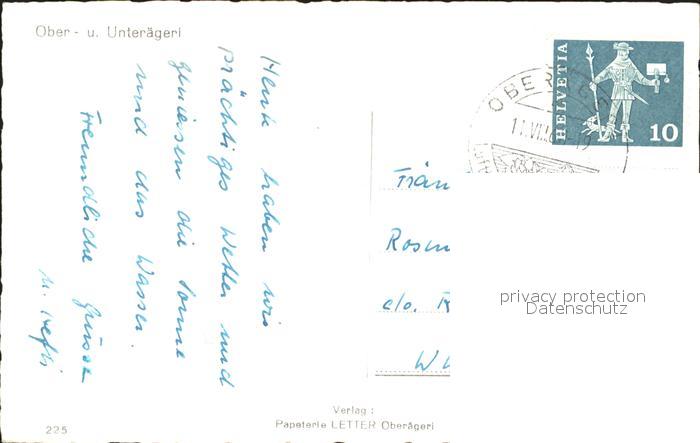 Ober- u. Unterägeri
Heute haben wir
prächtiges Wetter und
geniessen die Sonne
und das Wasser.
Freundliche Grüsse
HELVETIA
10
OBER
11.VI.6
Rosen
c/o.
privacy protection
Datenschutz
Verlag :
Papeterie LETTER Oberägeri
225